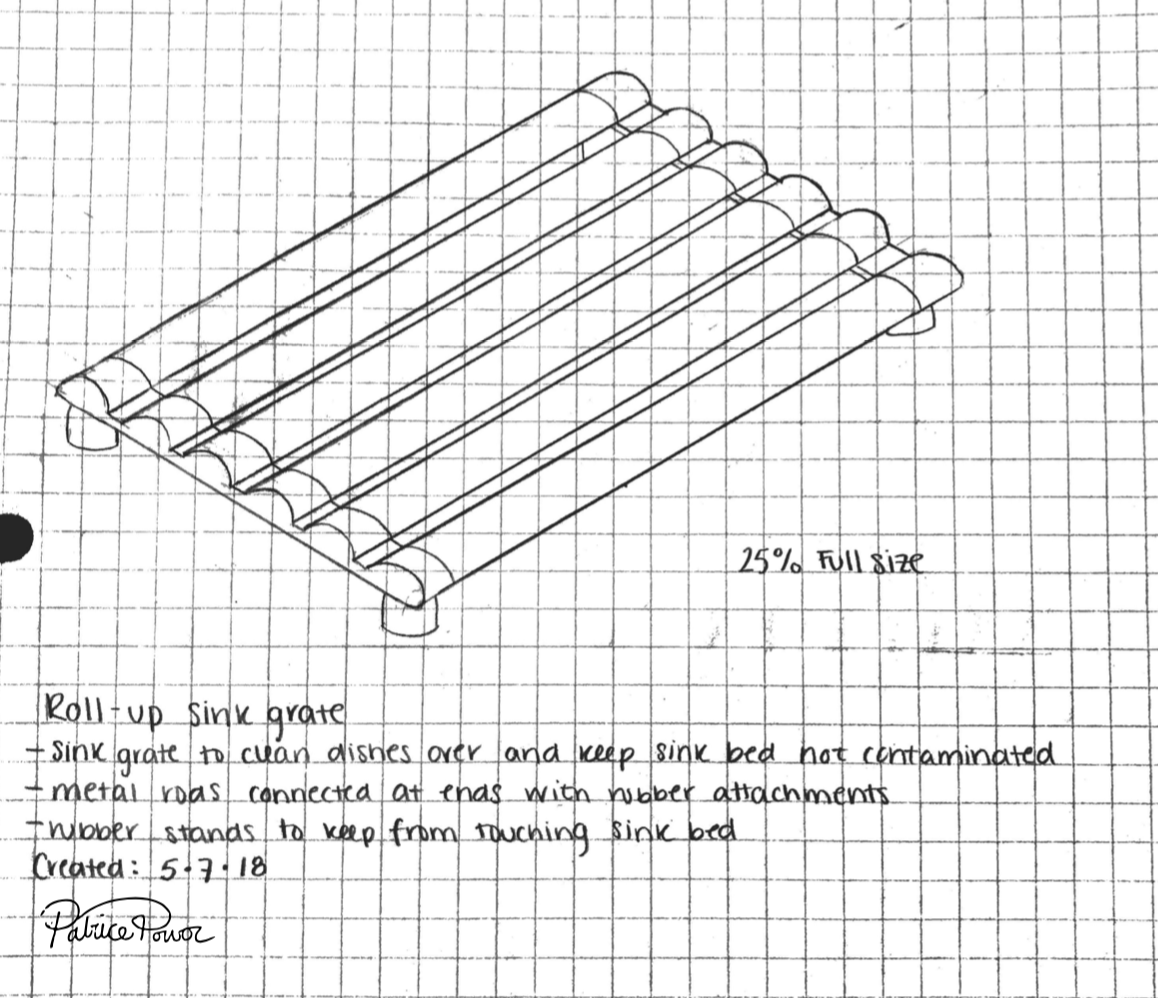 25% Full size
Roll-up sink grate
- sink grate to clean dishes over and keep sink bed not contaminated
- metal rods connected at ends with rubber attachments
- rubber stands to keep from touching sink bed
Created: 5.7.18
Patrice Power